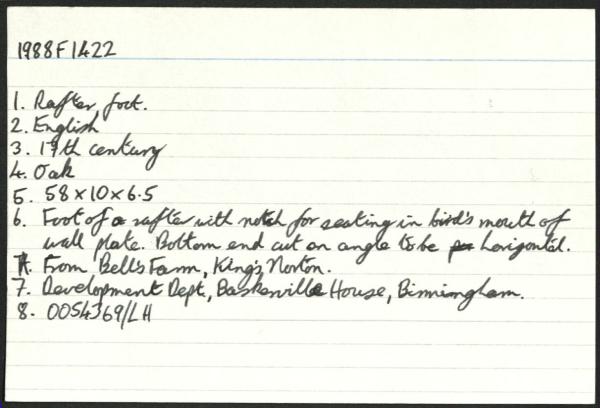 1988F1422
1. Rafter foot.
2. English
3. 17th century
4. Oak
5. 58 x 10 x 6.5
6. Foot of a rafter with notch for seating in bird's mouth of
wall plate. Bottom end cut on angle to be horizontal.
From Bell's Farm, King's Norton.
7. Development Dept, Baskerville House, Birmingham.
8. 0054369/LH